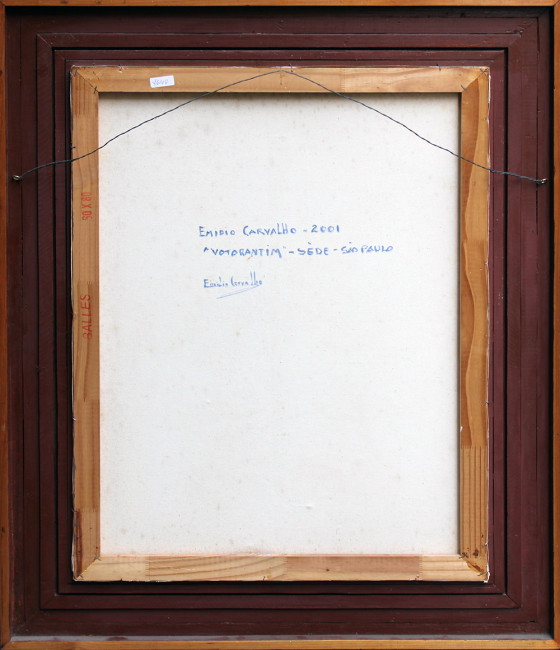 EMIDIO CARVALHO - 2001
"VOTORANTIM" - SÉDE - SÃO PAULO
Emidio Carvalho
90 X 80
BALLES